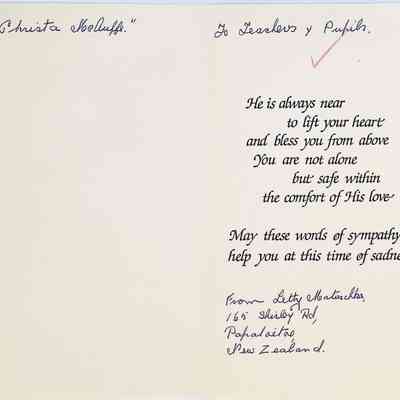 Christa McAuffe."
To Teachers & Pupils.
He is always near
to lift your heart
and bless you from above
You are not alone
but safe within
the comfort of His love
May these words of sympathy
help you at this time of sadne
From Letty Mataschka,
165 Shirley Rd,
Papatoitoi,
New Zealand.